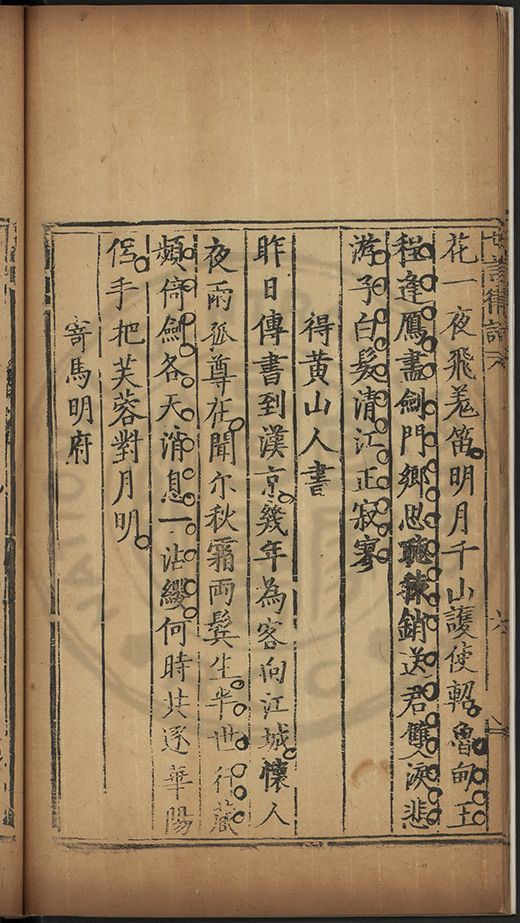 花一夜飛羌笛明月千山護使軺魯甸王
程逢鴈盡劍門鄉思聽猿銷送君雙淚悲
游子白髮清江正寂寥
得黃山人書
昨日傳書到漢京幾年為客向江城懷人
夜雨孤尊在聞尔秋霜兩鬂生半世行藏
頻倚劍各天消息一沾纓何時共逐華陽
侶手把芙蓉對月明
寄馬明府